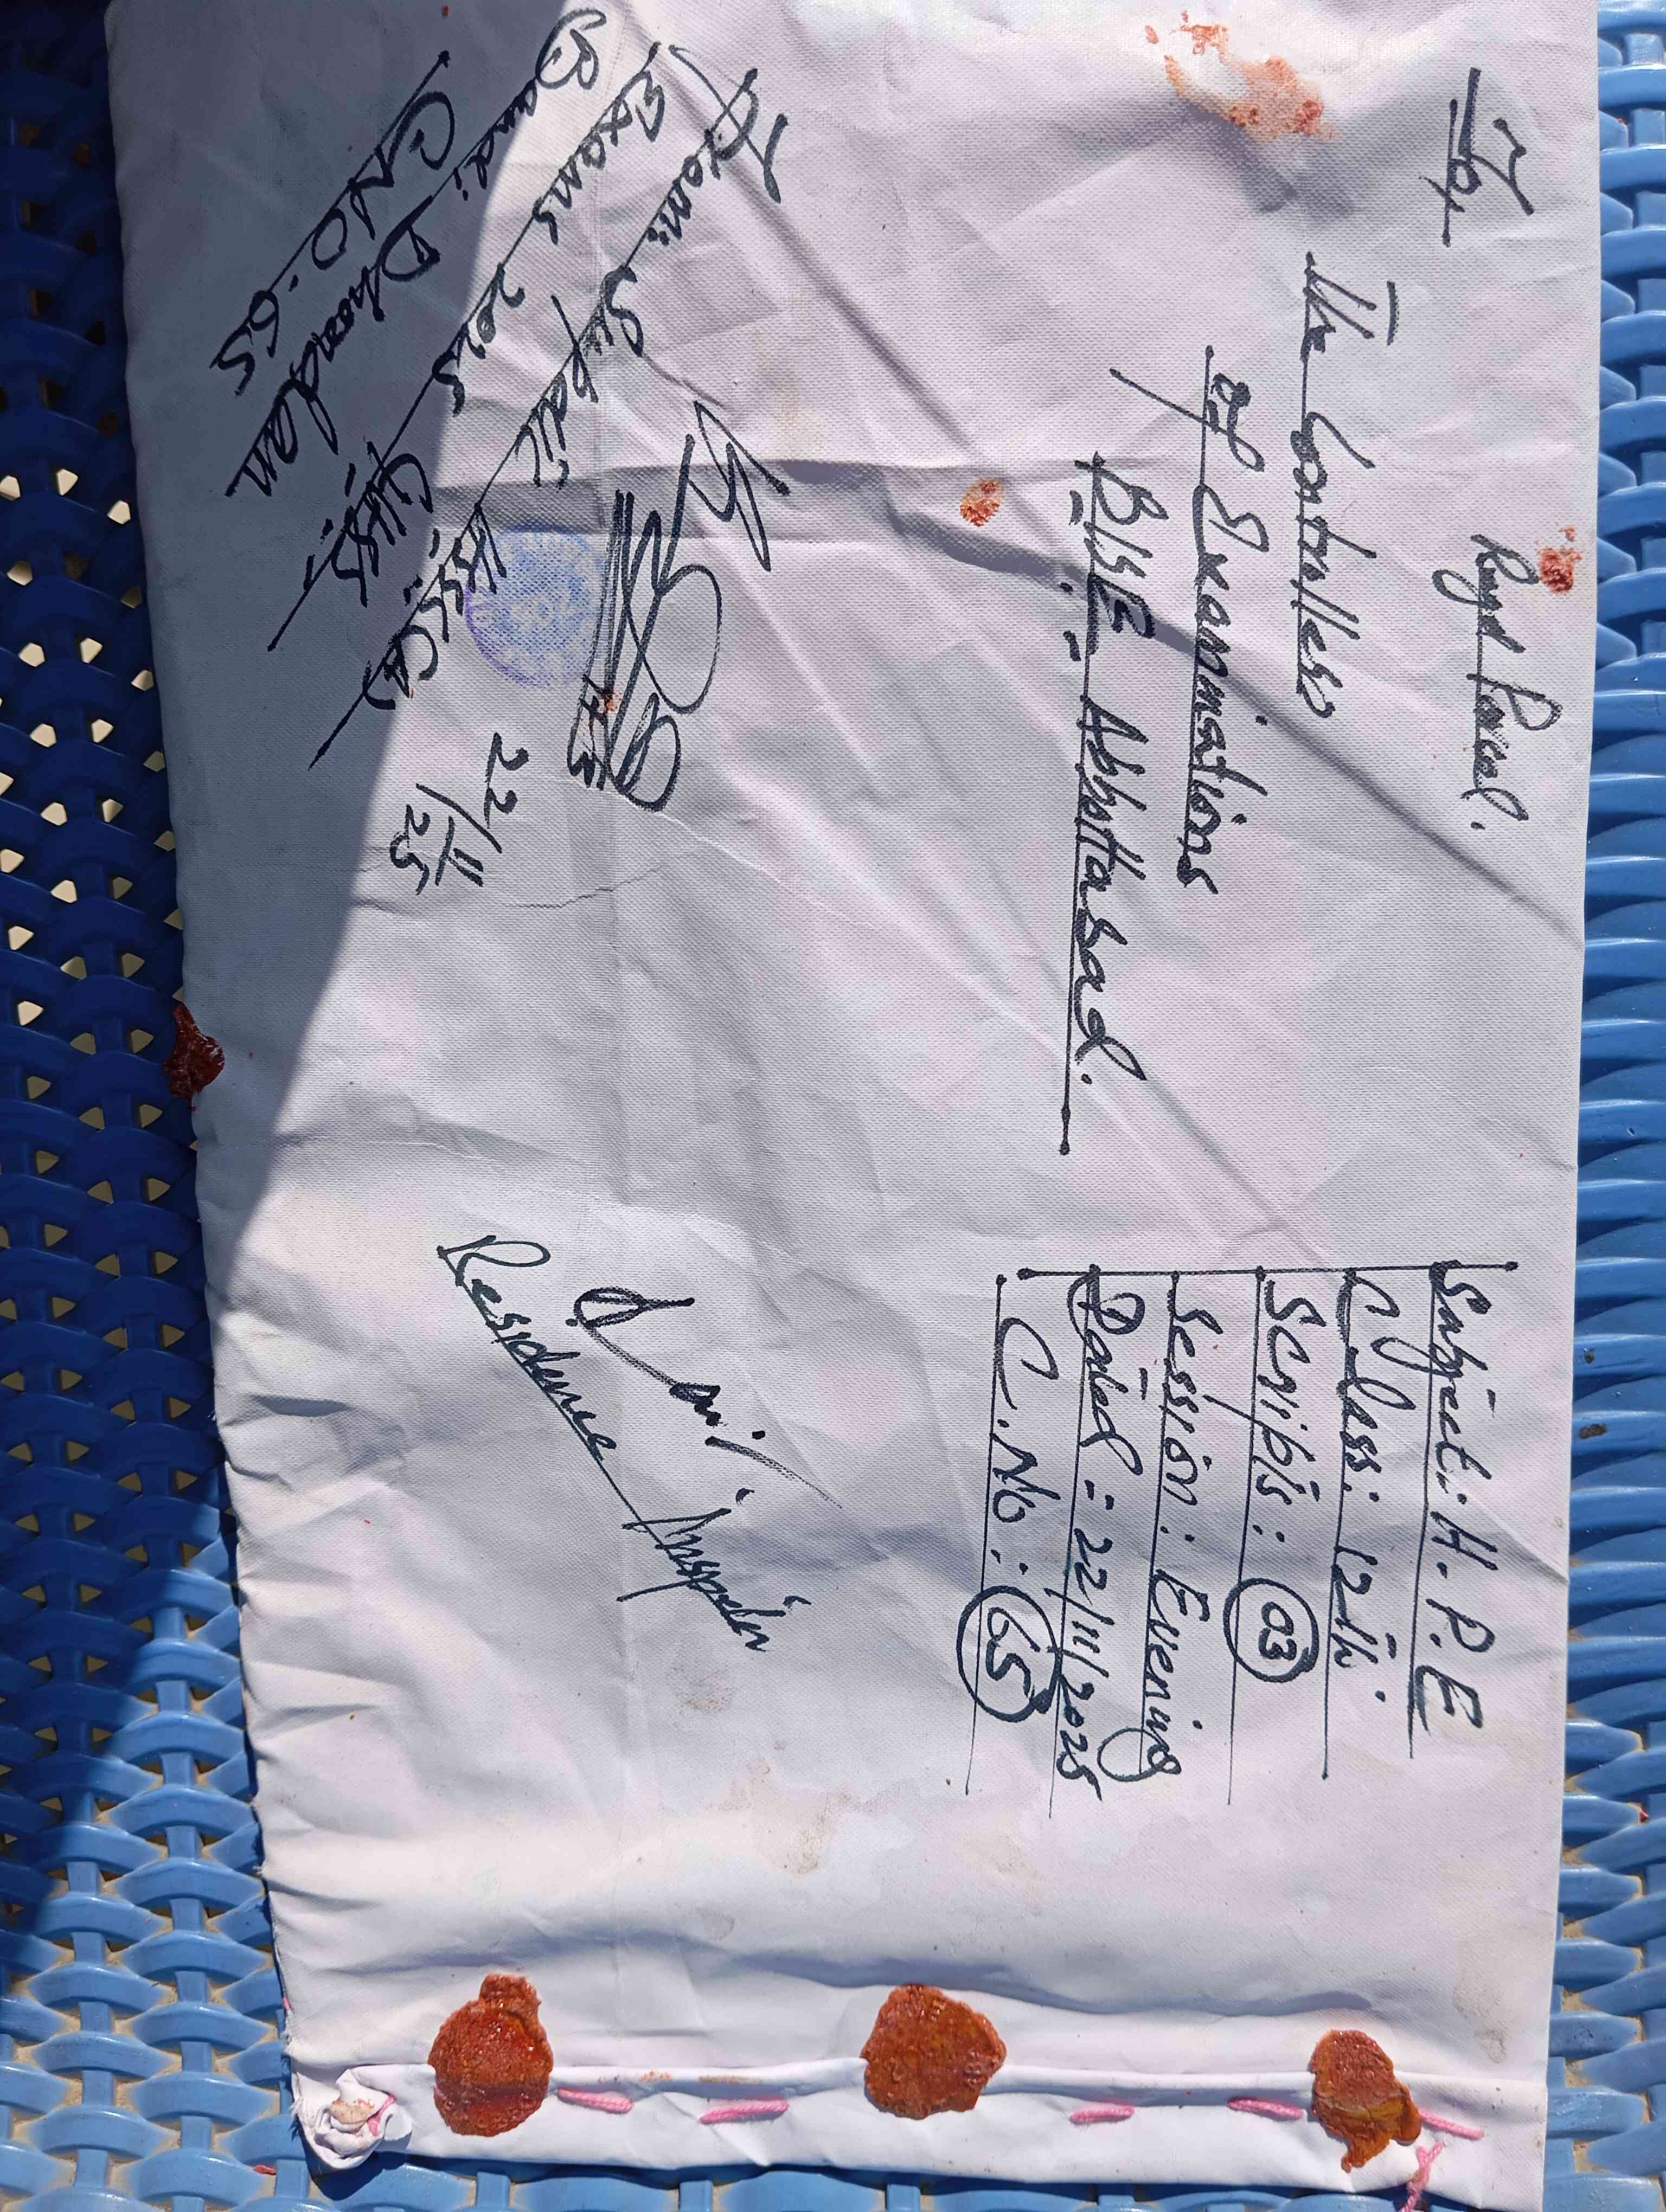 Regd Parcel.
To,
The Controller
of Examinations
B.I.S.E Abbottabad.
Subject: H.P.E
Class: 12th
Scripts: 03
Session: Evening
Dated = 22/11/2025
C.No: 65
From: Supdtt HSSC(A)
Exams 2025 GHSS
Bandi Dhondan
CNO-65
22/11/25
Residence Inspector